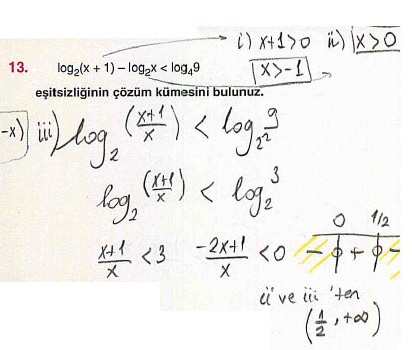 i) x+1>0 ii) x>0
13. log₂(x + 1) – log₂x < log₄9 x>-1
eşitsizliğinin çözüm kümesini bulunuz.
-x) iii) log₂(x+1/x) < log₂²9
log₂(x+1/x) < log₂3
0 1/2
x+1/x <3 -2x+1/x <0 - + -
ii ve iii 'ten
(1/2, +∞)